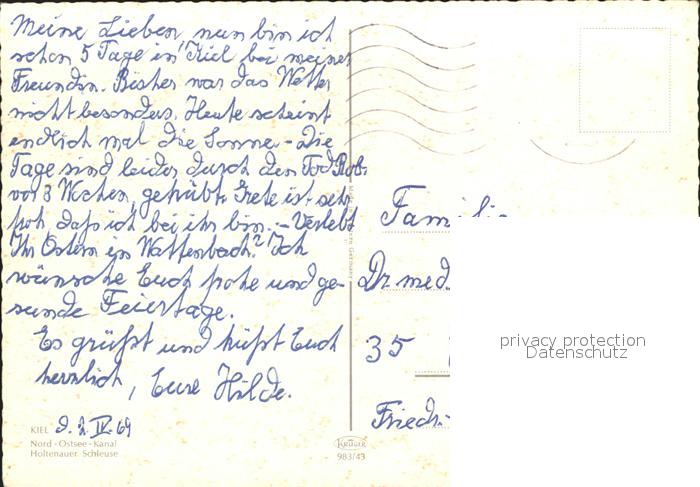 Meine Lieben nun bin ich
schon 5 Tage in Kiel bei meiner
Freundin. Bisher war das Wetter
nicht besonders. Heute scheint
endlich mal die Sonne - Die
Tage sind leider durch den Tod Rob.
vor 3 Wochen, getrübt. Grete ist sehr
froh daß ich bei ihr bin. - Verlebt
Ihr Ostern in Wattenbach? Ich
wünsche Euch frohe und ge-
sunde Feiertage.
Es grüßt und küßt Euch
herzlich, Eure Hilde.
d. 2. IV. 69
KIEL
Nord-Ostsee-Kanal
Holtenauer Schleuse
Krüger
983/43
Familie
Dr med
35
Friedr.
privacy protection
Datenschutz